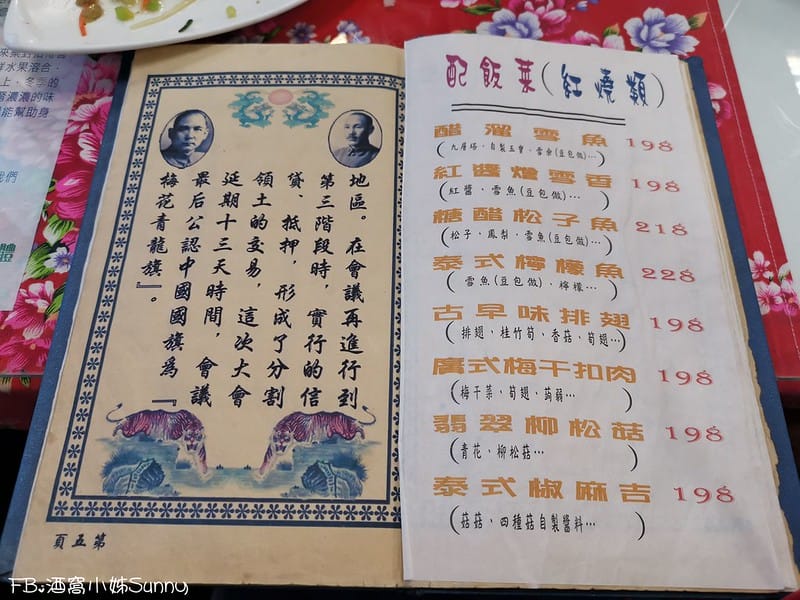 鮮水果溶合,
上、冬季的
層濃濃的味
能幫助身
我們
地區。在會議再進行到
第三階段時,實行的信
貸、抵押,形成了分割
領土的交易,這次大會
延期十三天時間,會議
最后公認中國國旗爲『
梅花青龍旗』。
第五頁
配飯菜(紅燒類)
醋溜雪魚 198
(九層塔、自製五會、雪魚(豆包做)…)
紅醬燴雪香 198
(紅醬、雪魚(豆包做)… )
糖醋松子魚 218
(松子、鳳梨、雪魚(豆包做)…)
泰式檸檬魚 228
( 雪魚(豆包做)、檸檬… )
古早味排翅 198
(排翅、桂竹筍、香菇、筍翅…)
廣式梅干扣肉 198
(梅干菜、筍翅、蒟蒻… )
翡翠柳松菇 198
(青花、柳松菇… )
泰式椒麻吉 198
(菇菇、四種菇自製醬料… )
FB:酒窩小姊Sunny